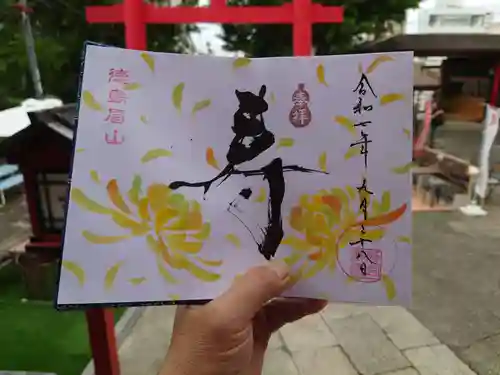 令和七年九月二十八日
奉拝
徳島眉山